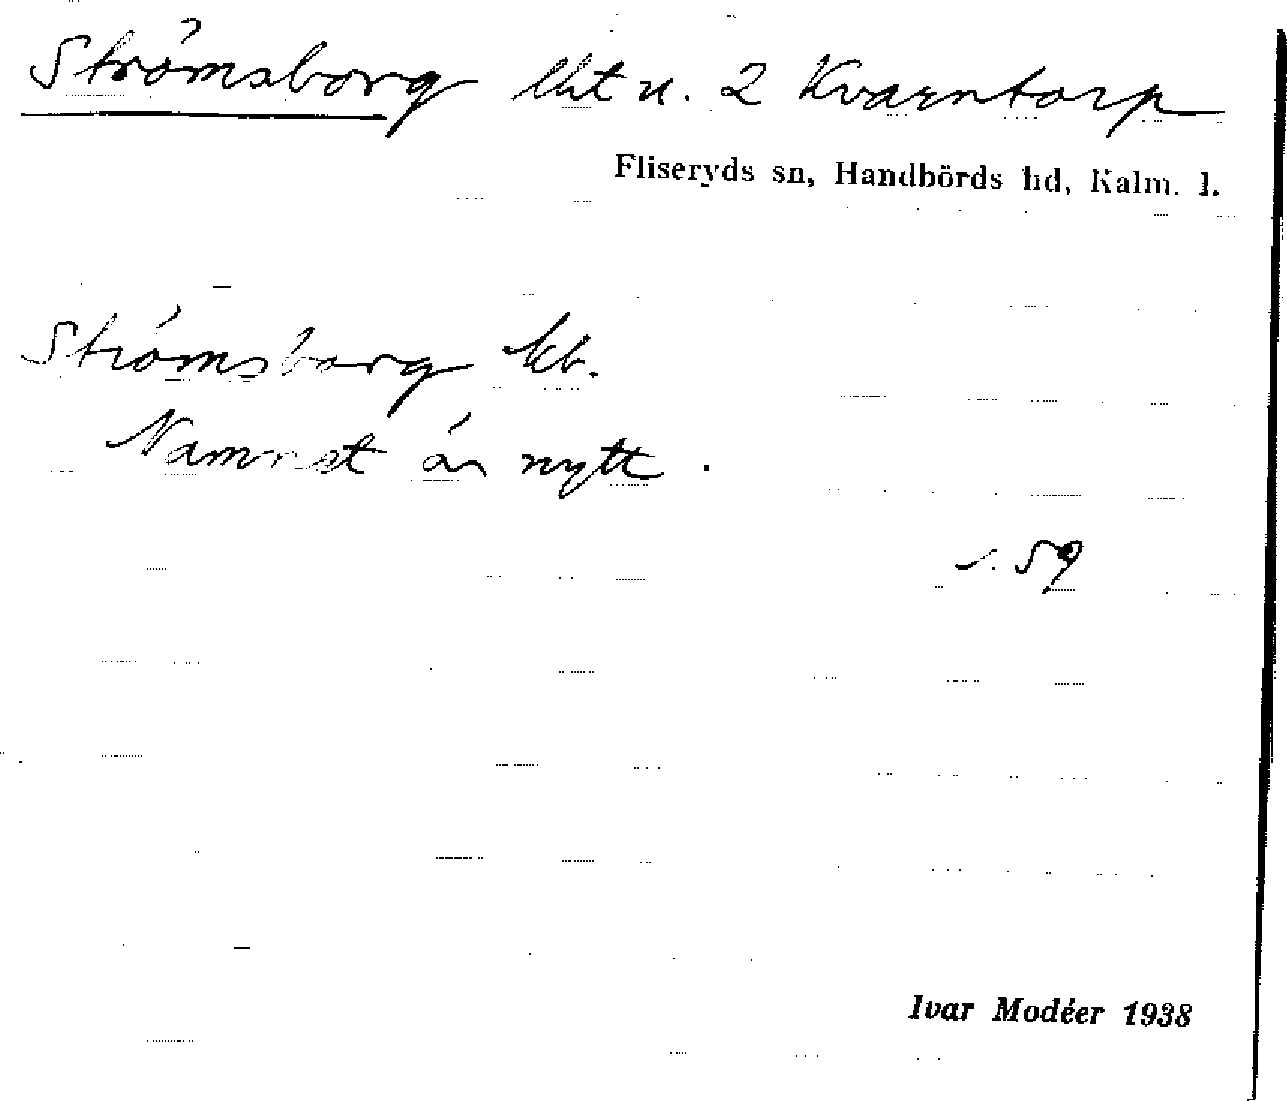 Strömsborg lht u. 2 Kvarntorp
Fliseryds sn, Handbörds hd, Kalm. l.
Strömsborg kb.
Namnet är nytt.
s. 59
Ivar Modéer 1938